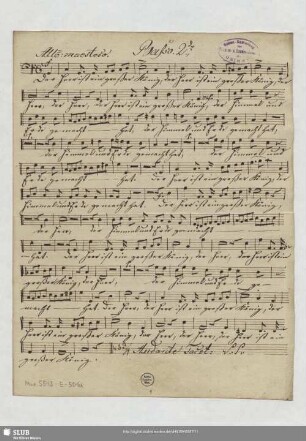 Allo. maestoso. Basso. 2do
Der Herr ist ein großer König, der Herr ist ein großer König, der
Herr, der Herr, der Herr ist ein großer König, der Himmel und
Erde gemacht hat, der Himmel und Erde gemacht hat,
der Himmel und Erde gemacht hat, der Himmel und
Erde gemacht hat. Der Herr ist ein großer König, der
Himmel und Erde gemacht hat. Der Herr ist ein großer König,
der Herr, der Himmel und Erde gemacht
hat. Der Herr ist ein großer König, der Herr, der Herr ist ein
großer König, der Herr, der Himmel und Erde ge-
macht hat. Der Herr, der Herr ist ein großer König, der
Herr ist ein großer König, der Herr, der Herr, der Herr ist ein
großer König. Andante Tacet.
SLUB
Wir führen Wissen.